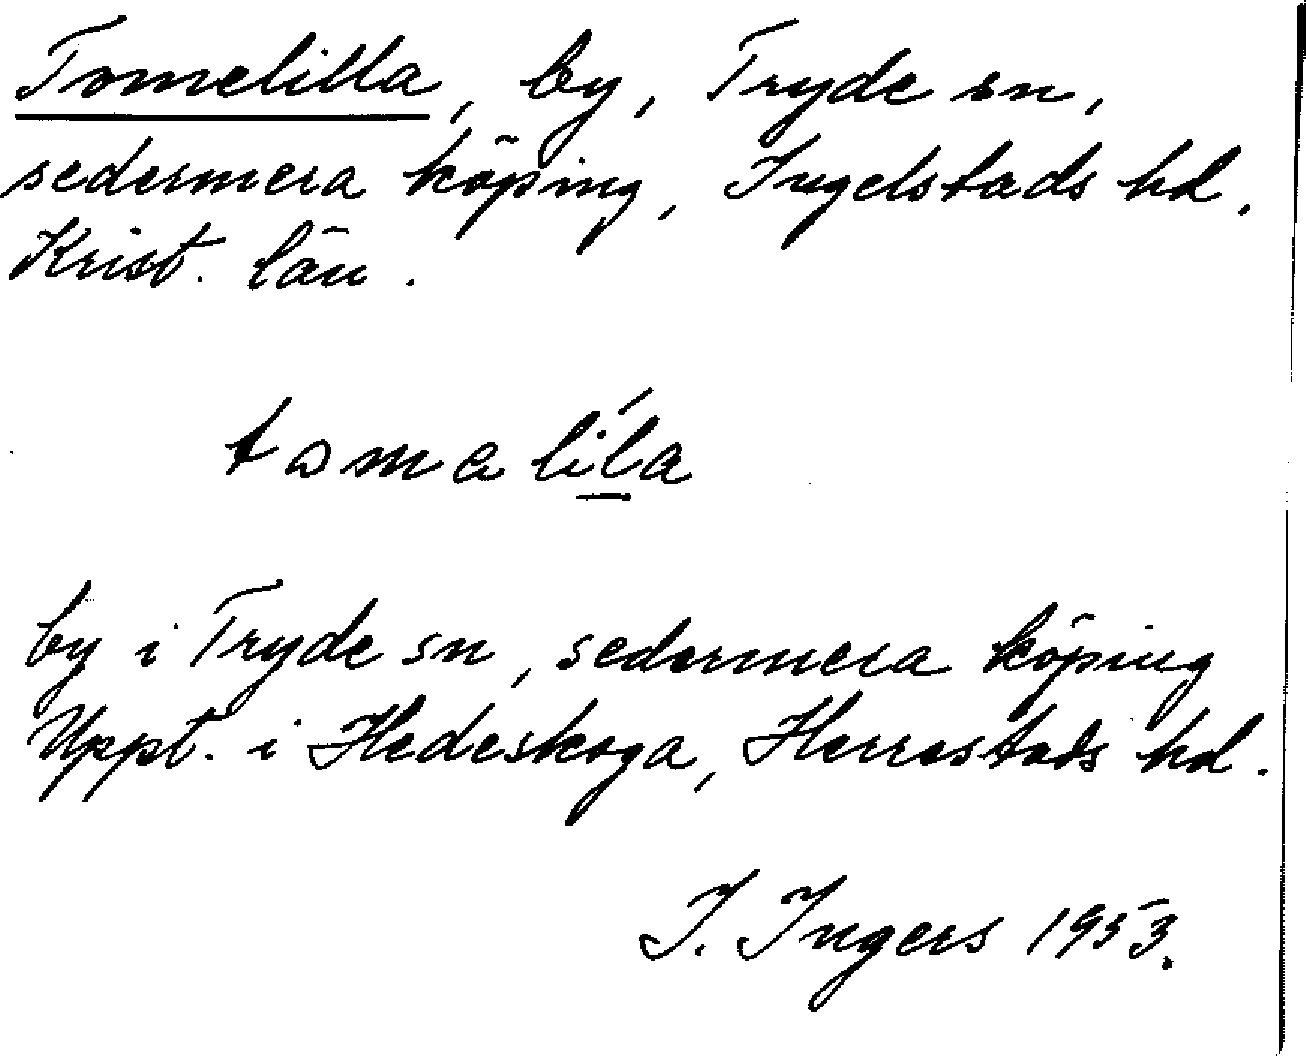 Tomelilla, by, Tryde sn,
sedermera köping, Ingelstads hd,
Krist. län.
tomalíla
by i Tryde sn, sedermera köping
Uppt. i Hedeskoga, Herrestads hd.
I. Ingers 1953.